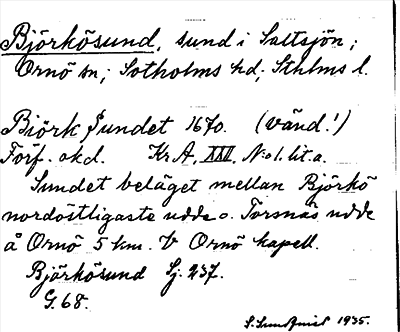 Björkösund, sund i Saltsjön;
Ornö sn; Sotholms hd; Sthlms l.
Biörk Sundet 1670. (vänd!)
Förf. okd. Kr.A, XXII, N:o 1. lit. a.
Sundet beläget mellan Björkö
nordöstligaste udde o. Torsnäs udde
å Ornö 5 km. V Ornö kapell.
Björkösund Sj. 237.
G. 68.
S. Sundqvist 1935.